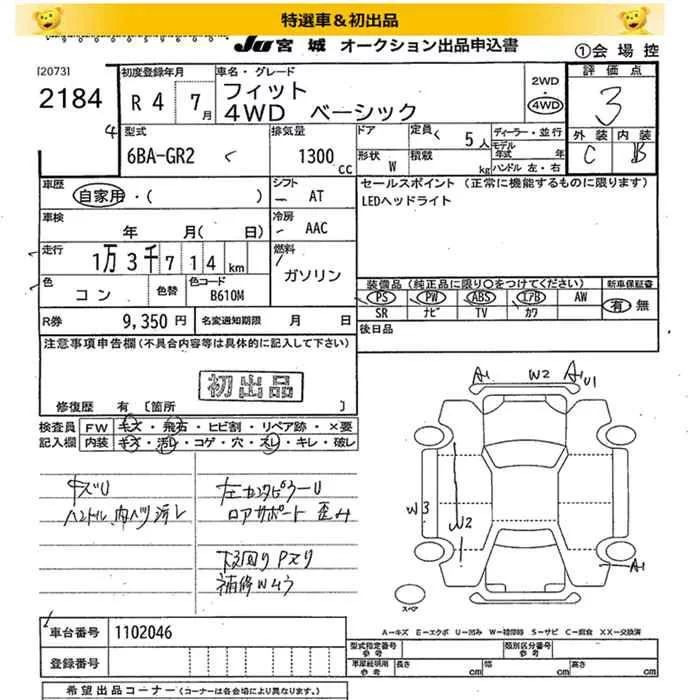 特選車＆初出品
JU 宮城 オークション出品申込書
①会場控
[2073]
2184
初度登録年月
R 4 7月
車名・グレード
フィット
4WD ベーシック
2WD
4WD
評価点
3
外装 内装
C B
4
型式
6BA-GR2
排気量
1300cc
ドア
形状 W
定員 5人
積載 kg
ディーラー・並行
モデル年式 年
ハンドル 左・右
車歴
自家用・( )
シフト
AT
セールスポイント (正常に機能するものに限ります)
LEDヘッドライト
車検
年 月( 日)
冷房
AAC
走行
1万3千714km
燃料
ガソリン
色
コン
色替
色コード
B610M
装備品(純正品に限り○をつけてください)
新車保証書
PS PW ABS エアB AW
有 無
SR ナビ TV カワ
R券 9,350円
名変通知期限 月 日
後日品
注意事項申告欄(不具合内容等は具体的に記入して下さい)
初出品
修復歴 有 〔箇所 〕
検査員記入欄
FW キズ・飛石・ヒビ割・リペア跡・×要
内装 キズ・汚レ・コゲ・穴・スレ・キレ・破レ
A1 W2 A1 U1
W3
W2
A1
ハンドル
ロアサポート 歪み
下回り
補修
スペア
A－キズ E－エクボ U－凹み W－補修跡 S－サビ C－腐食 XX－交換済
車台番号 1102046
登録番号
型式指定番号 参考
類別区分番号 参考
車庫証明用 参考
長さ cm 幅 cm 高さ cm
希望出品コーナー(コーナーは各会場により異なります。)